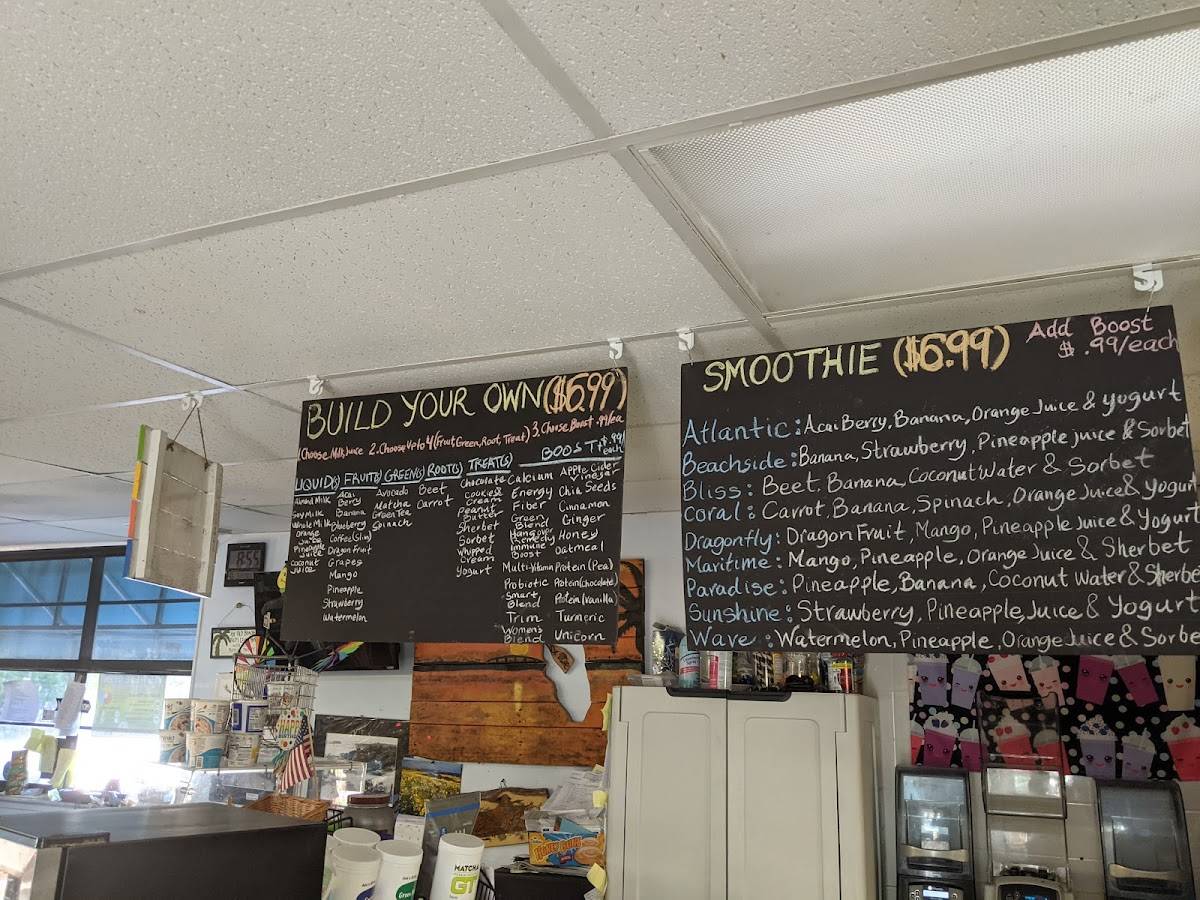 BUILD YOUR OWN ($6.99)
Choose Milk, Juice 2. Choose Up to 4 (Fruit, Green, Root, Treat) 3. Choose Boost .99/ea
BOOST $.99/each
LIQUID(S) FRUIT(S) GREEN(S) ROOT(S) TREAT(S)
Almond Milk
Soy Milk
Whole Milk
Orange Juice
Pineapple Juice
Coconut Juice
Acai Berry
Banana
Blueberry
Coffee (Slim)
Dragon Fruit
Grapes
Mango
Pineapple
Strawberry
Watermelon
Avocado
Matcha
Green Tea
Spinach
Beet
Carrot
Chocolate
Cookies
Cream
Peanut
Butter
Sherbet
Sorbet
Whipped
Cream
Yogurt
Calcium
Energy
Fiber
Green
Blend
Hangover
Remedy
Immune
Boost
Multi-Vitamin
Probiotic
Smart
Blend
Trim
Women's
Blend
Apple Cider
Vinegar
Chia Seeds
Cinnamon
Ginger
Honey
Oatmeal
Protein (Pea)
Protein (Chocolate)
Protein (Vanilla)
Turmeric
Unicorn
SMOOTHIE ($6.99)
Add Boost
$.99/each
Atlantic: Acai Berry, Banana, Orange Juice & Yogurt
Beachside: Banana, Strawberry, Pineapple juice & Sorbet
Bliss: Beet, Banana, Coconut Water & Sorbet
Coral: Carrot, Banana, Spinach, Orange Juice & Yogurt
Dragonfly: Dragon Fruit, Mango, Pineapple Juice & Yogurt
Maritime: Mango, Pineapple, Orange Juice & Sherbet
Paradise: Pineapple, Banana, Coconut Water & Sherbe
Sunshine: Strawberry, Pineapple Juice & Yogurt
Wave: Watermelon, Pineapple, Orange Juice & Sorbe
MATCHA
GT